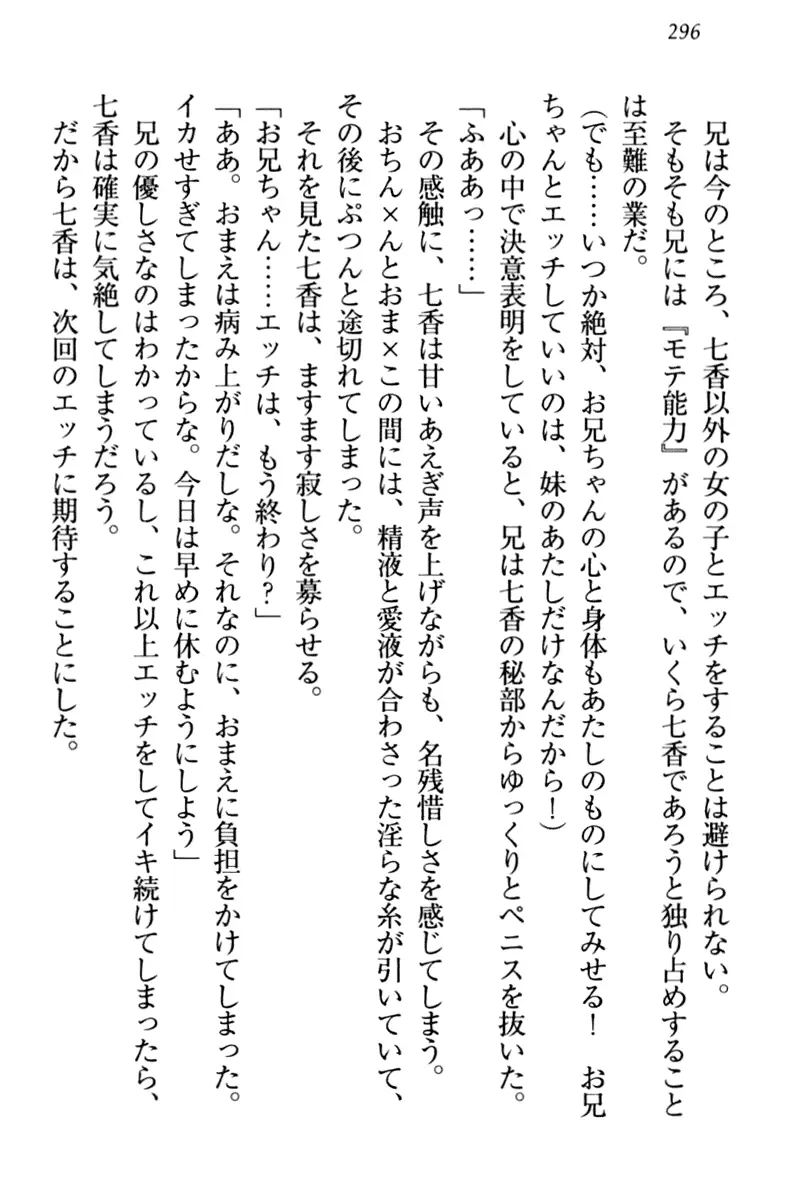 296
兄は今のところ、七香以外の女の子とエッチをすることは避けられない。
そもそも兄には『モテ能力』があるので、いくら七香であろうと独り占めすること
は至難の業だ。
(でも……いつか絶対、お兄ちゃんの心と身体もあたしのものにしてみせる!　お兄
ちゃんとエッチしていいのは、妹のあたしだけなんだから!)
心の中で決意表明をしていると、兄は七香の秘部からゆっくりとペニスを抜いた。
「ふああっ……」
その感触に、七香は甘いあえぎ声を上げながらも、名残惜しさを感じてしまう。
おちん×んとおま×この間には、精液と愛液が合わさった淫らな糸が引いていて、
その後にぷつんと途切れてしまった。
それを見た七香は、ますます寂しさを募らせる。
「お兄ちゃん……エッチは、もう終わり?」
「ああ。おまえは病み上がりだしな。それなのに、おまえに負担をかけてしまった。
イカせすぎてしまったからな。今日は早めに休むようにしよう」
兄の優しさなのはわかっているし、これ以上エッチをしてイキ続けてしまったら、
七香は確実に気絶してしまうだろう。
だから七香は、次回のエッチに期待することにした。